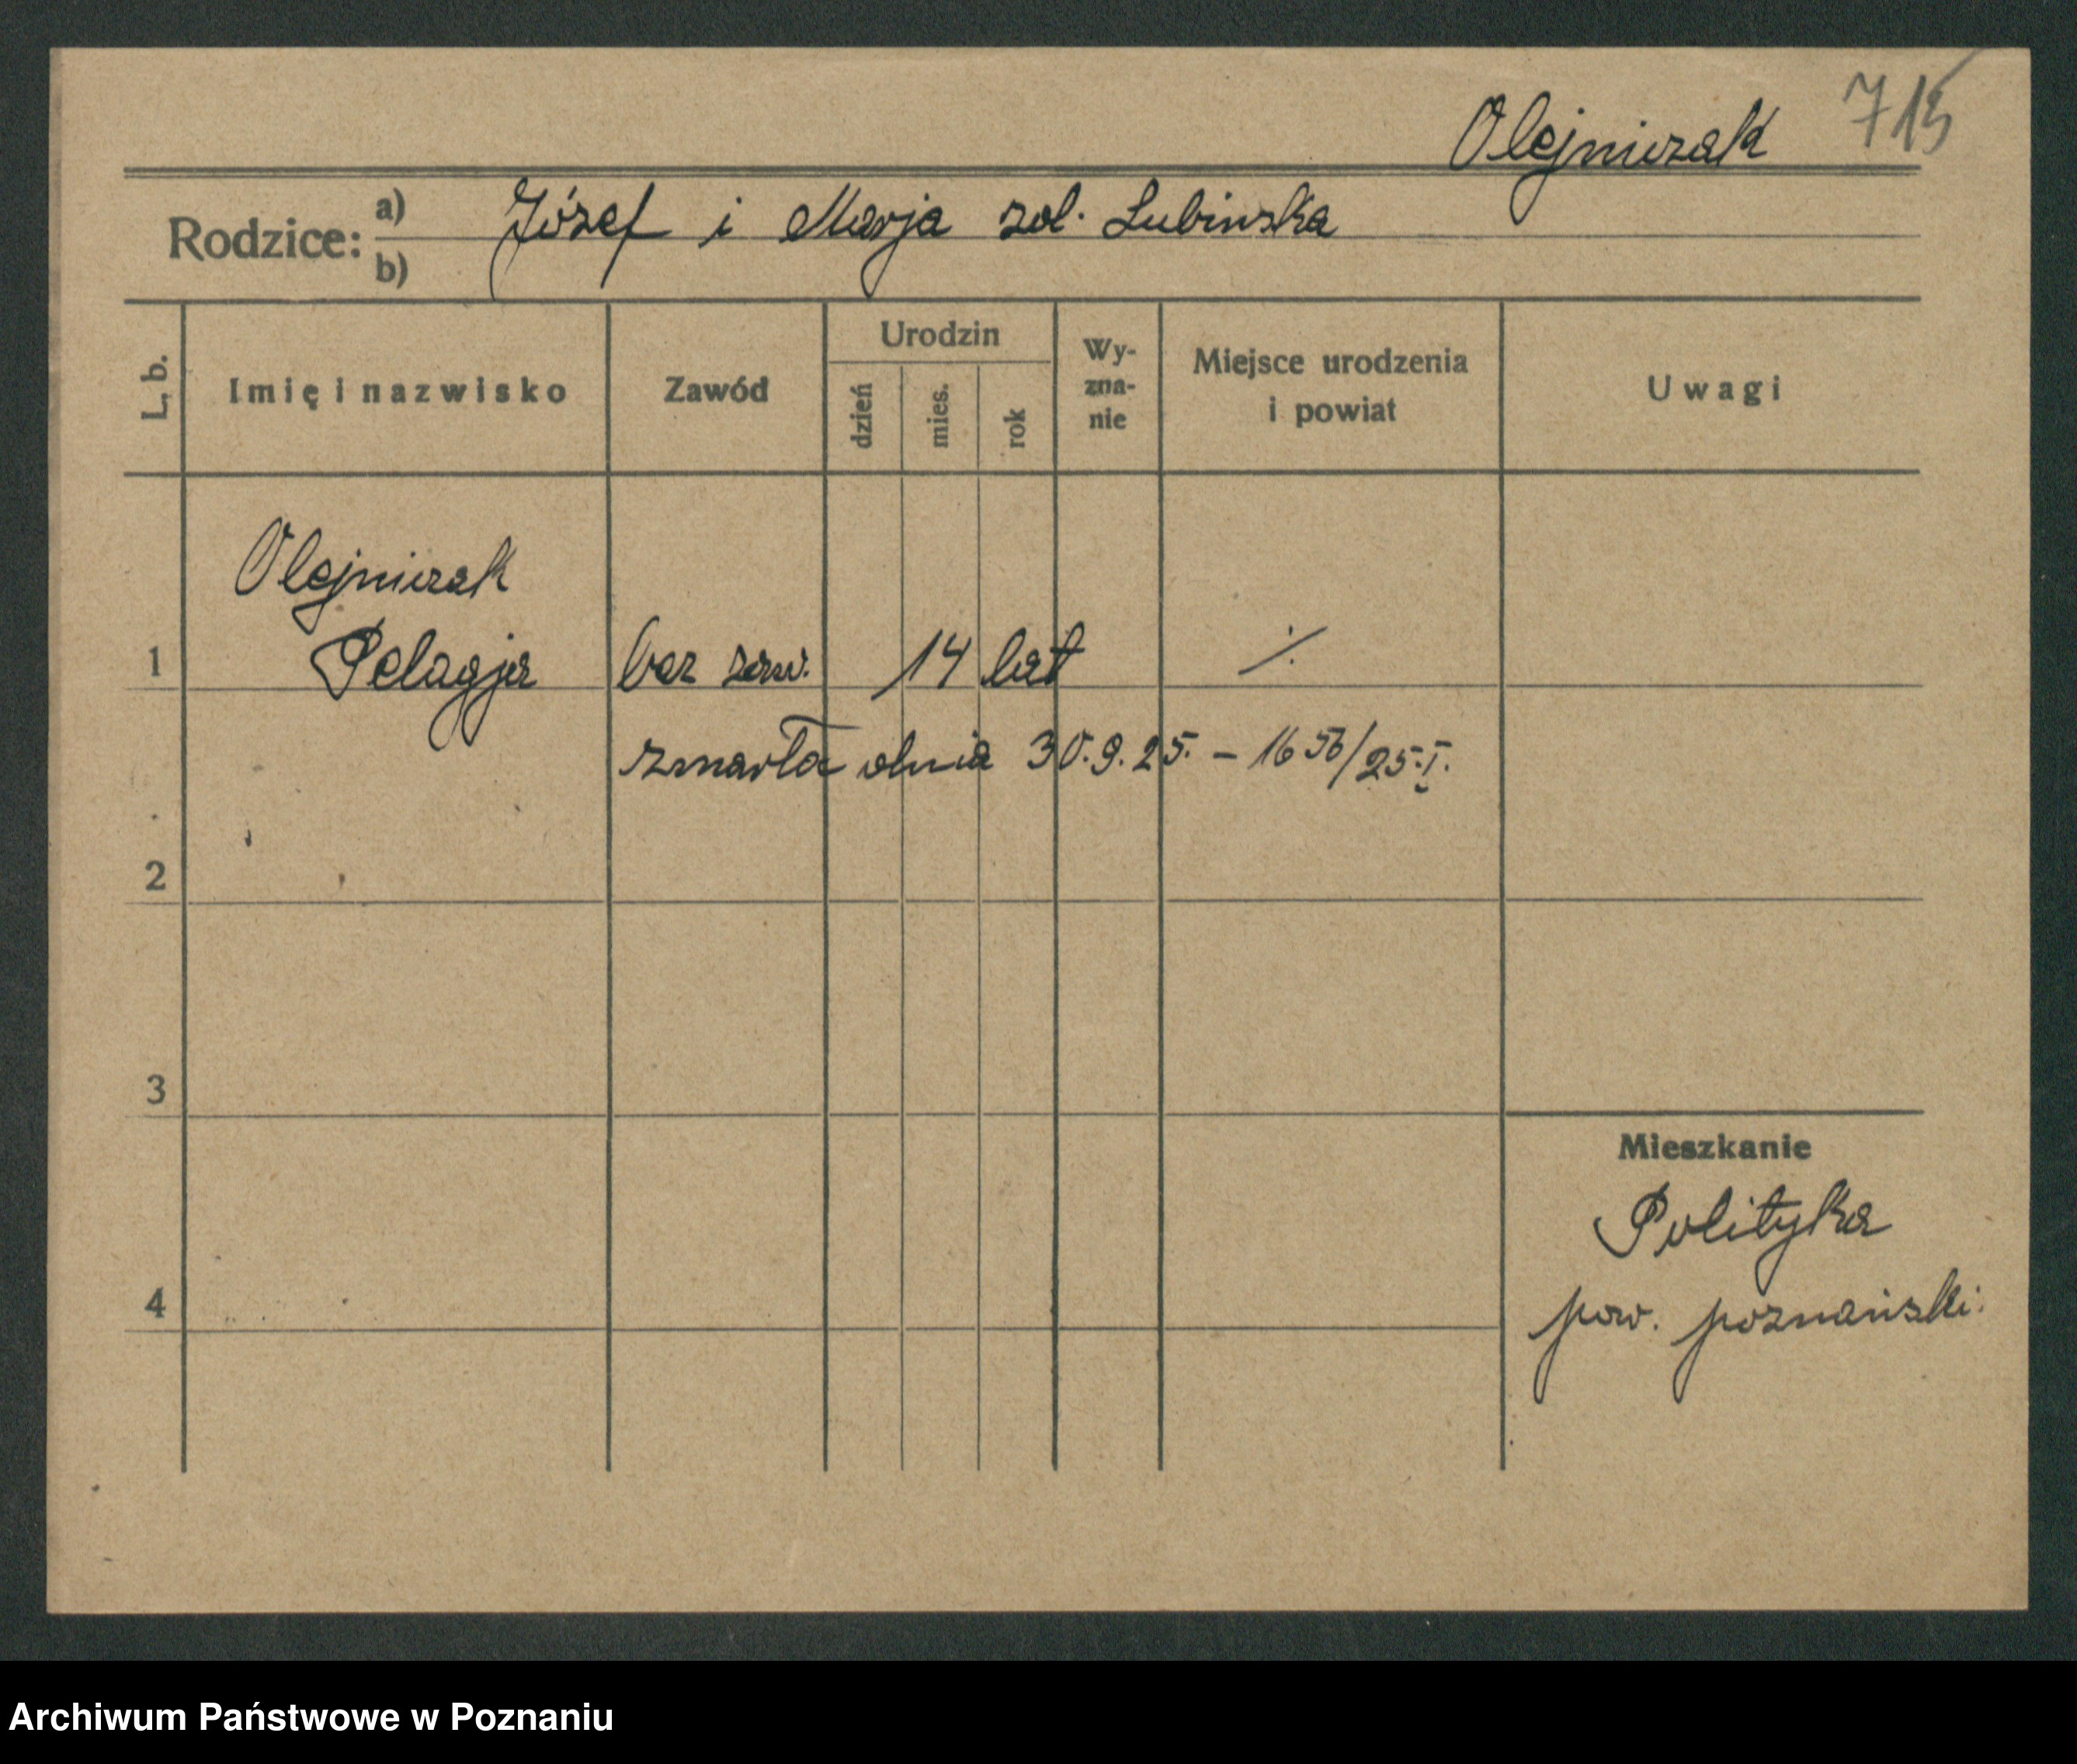 Olejniczak 715
Rodzice: a) Józef i Marja zd. Lubinska
b)
L. b. Imię i nazwisko Zawód Urodzin dzień mies. rok Wyznanie Miejsce urodzenia i powiat Uwagi
Olejniczak
1 Pelagja bez zaw. 14 lat ./.
zmarła dnia 30.9.25. – 1656/25.I.
2
3
Mieszkanie
Polityka
4 pow. poznański.
Archiwum Państwowe w Poznaniu